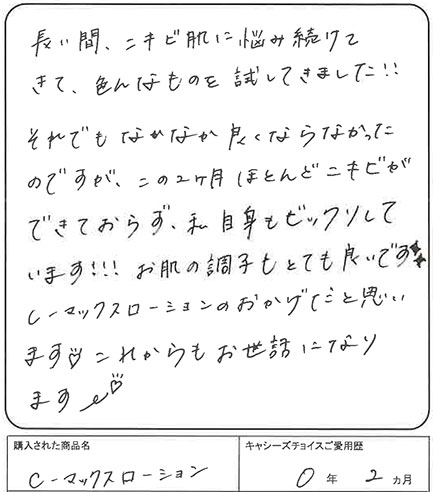 長い間、ニキビ肌に悩み続けて
きて、色んなものを試してきました!!
それでもなかなか良くならなかった
のですが、この2ヶ月ほとんどニキビが
できておらず、私自身もビックリして
います!!! お肌の調子もとても良いです
C-マックスローションのおかげだと思い
ます♡これからもお世話になり
ます♡
購入された商品名
キャシーズチョイスご愛用歴
C-マックスローション
0年 2ヵ月